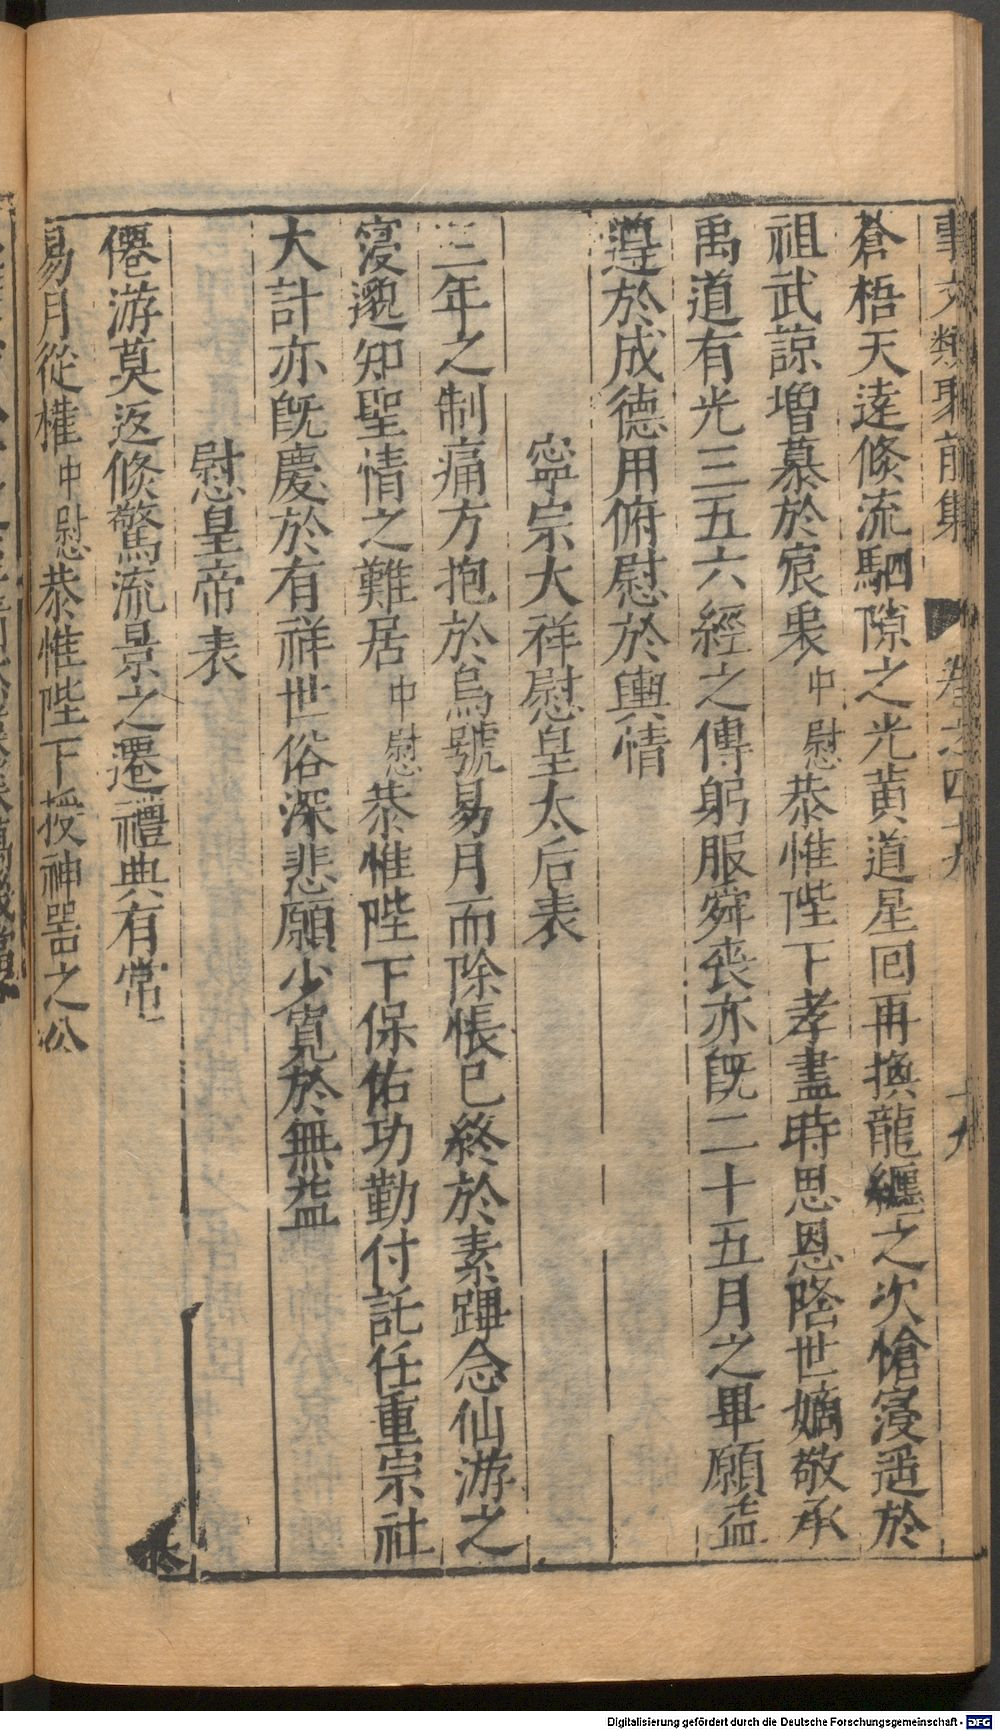 事文類聚前集 卷之四十九 十九
蒼梧天遠倏流駟隙之光黃道星回再換龍纏之次愴寖遥於
祖武諒增慕於宸衷中慰恭惟陛下孝盡時思恩隆世嫡敬承
禹道有光三五六經之傳躬服舜喪亦旣二十五月之畢願益
遵於成德用俯慰於輿情
寧宗大祥慰皇太后表
三年之制痛方抱於烏號易月而除悵已終於素韠念仙游之
寖邈知聖情之難居中慰恭惟陛下保佑功勤付託任重宗社
大計亦旣慶於有祥世俗深悲願少寬於無益
慰皇帝表
僊游莫返倏驚流景之遷禮典有常
易月從權中慰恭惟陛下授神器之公
Digitalisierung gefördert durch die Deutsche Forschungsgemeinschaft - DFG